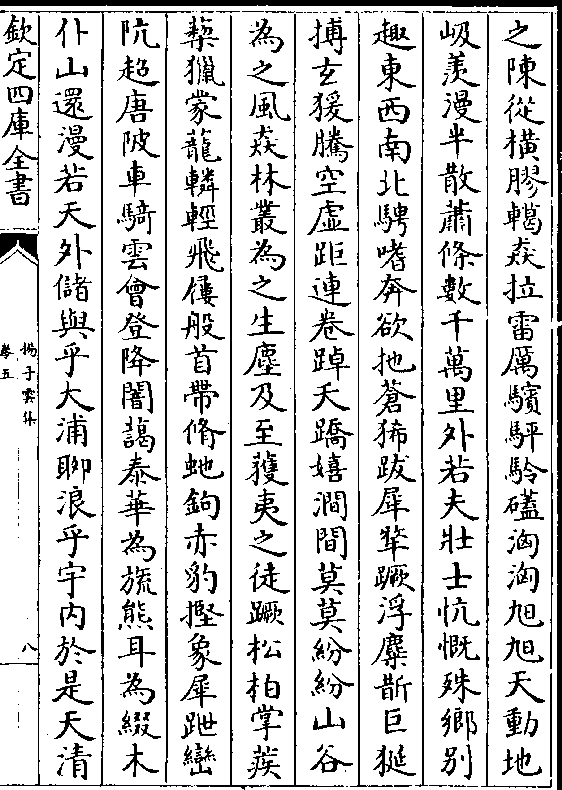 之陳從橫膠轕猋拉雷厲驞駍駖礚洶洶旭旭天動地
岋羨漫半散蕭條數千萬里外若夫壯士忼慨殊鄉別
趣東西南北騁嗜奔欲扡蒼狶跋犀犛蹶浮麋斮巨狿
搏玄猨騰空虛距連卷踔夭蹻嬉澗間莫莫紛紛山谷
為之風猋林叢為之生塵及至獲夷之徒蹶松柏掌蒺
藜獵蒙蘢轔輕飛屨般首帶脩虵鉤赤豹摼象犀跇巒
阬超唐陂車騎雲會登降闇藹泰華為旒熊耳為綴木
仆山還漫若天外儲與乎大浦聊浪乎宇內於是天清
欽定四庫全書
揚子雲集
卷五
八